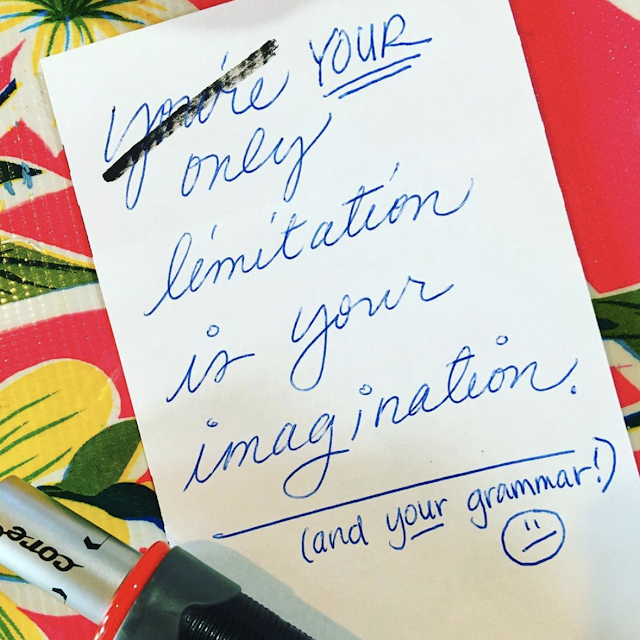 You're YOUR
only
limitation
is your
imagination.
(and your grammar!)